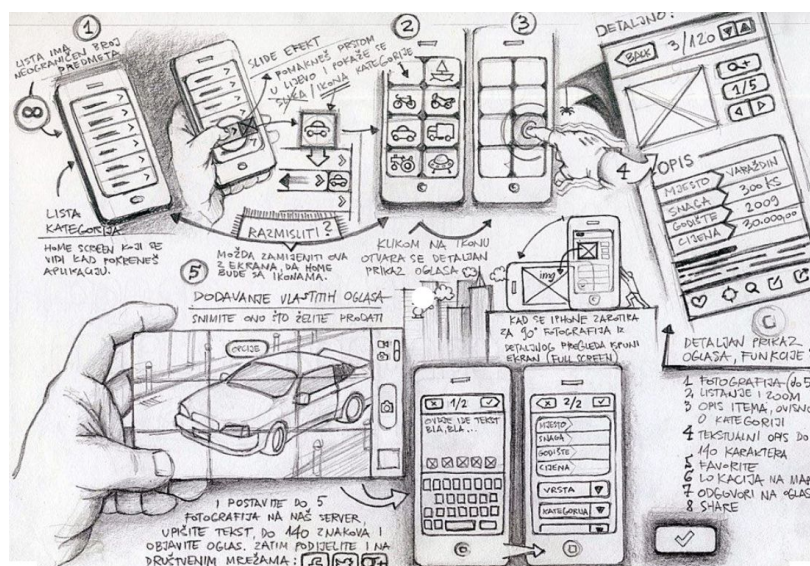 1
LISTA IMA
NEOGRANIČEN BROJ
PREDMETA
∞
LISTA
KATEGORIJA
HOME SCREEN KOJI SE
VIDI KAD POKRENEŠ
APLIKACIJU.
SLIDE EFEKT
POMAKNEŠ PRSTOM
U LIJEVO I POKAŽE SE
SLIKA / IKONA KATEGORIJE
RAZMISLITI?
MOŽDA ZAMIJENITI OVA
2 EKRANA, DA HOME
BUDE SA IKONAMA.
2
3
KLIKOM NA IKONU
OTVARA SE DETALJAN
PRIKAZ OGLASA
4
DETALJNO:
BACK 3/120
1/5
OPIS
MJESTO VARAŽDIN
SNAGA 300 KS
GODIŠTE 2009
CIJENA 30.000,00
img
KAD SE IPHONE ZAROTIRA
ZA 90° FOTOGRAFIJA IZ
DETALJNOG PREGLEDA ISPUNI
EKRAN (FULL SCREEN)
DETALJAN PRIKAZ
OGLASA, FUNKCIJE
1 FOTOGRAFIJA (do 5
2 LISTANJE I ZOOM
3 OPIS ITEMA, OVISN
O KATEGORIJI
4 TEKSTUALNI OPIS DO
140 KARAKTERA
5 FAVORITE
6 LOKACIJA NA MAP
7 ODGOVORI NA OGLAS
8 SHARE
5
DODAVANJE VLASTITIH OGLASA
SNIMITE ONO ŠTO ŽELITE PRODATI
OPCIJE
I POSTAVITE DO 5
FOTOGRAFIJA NA NAŠ SERVER,
UPIŠITE TEKST, DO 140 ZNAKOVA I
OBJAVITE OGLAS. ZATIM PODIJELITE I NA
DRUŠTVENIM MREŽAMA:
X 1/2
OVDJE IDE TEKST
BLA, BLA, ...
X 2/2
MJESTO
SNAGA
GODIŠTE
CIJENA
VRSTA
KATEGORIJA